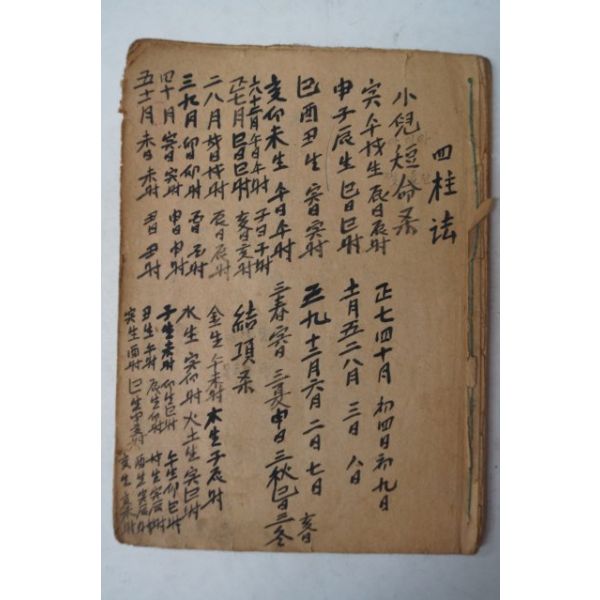 四柱法
小兒短命柔
寅午戌生 辰日辰时
申子辰生 巳日巳时
巳酉丑生 寅日寅时
亥卯未生 午日午时
六十二月 午日午时 子日子时
正七月 巳日巳时 亥日亥时
二八月 戌日戌时 辰日辰时
三九月 卯日卯时 酉日酉时
四十月 寅日寅时 申日申时
五十一月 未日未时 丑日丑时
正七四十月 初四日初九日
十一月五二八月 三日 八日
三九十二月六月 二日七日
三春寅日 三夏申日 三秋巳日 三冬亥日
結項柔
金生 午未时 木生子辰时
水生 寅卯时 火土生 寅巳时
子生未时 卯生巳时 午生卯巳时
丑生午时 辰生卯时
寅生酉时 巳生